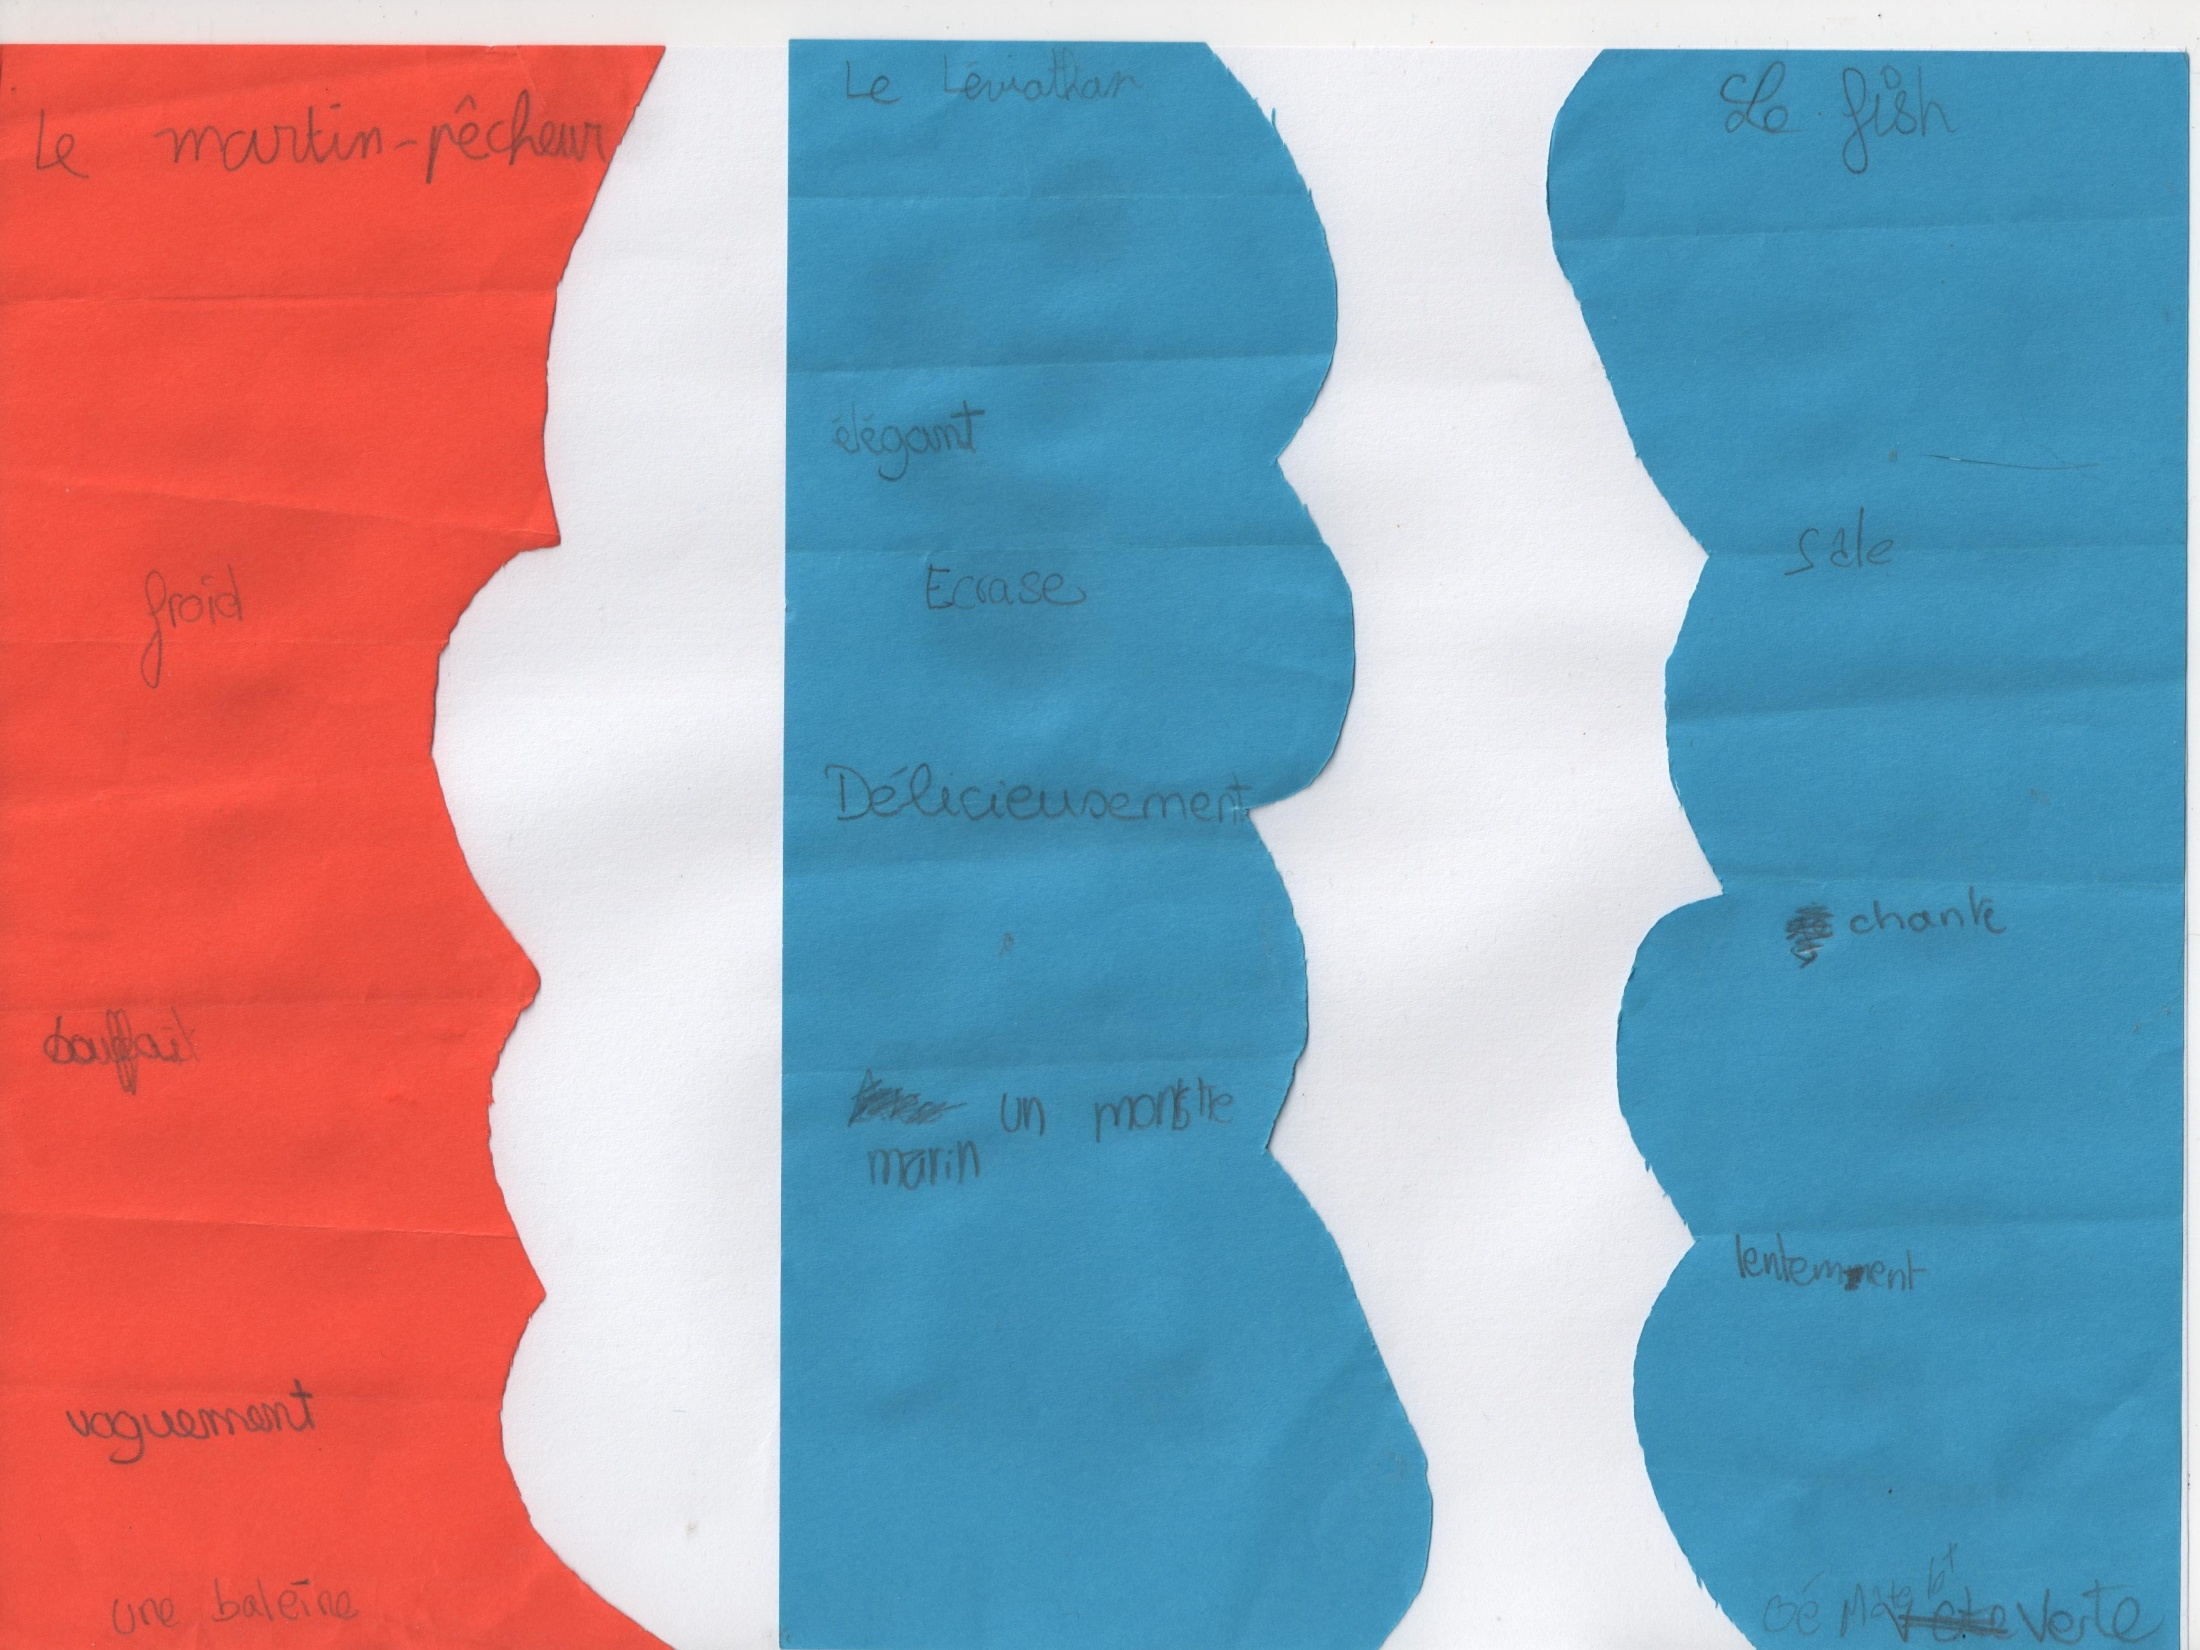 Le martin-pêcheur
froid
bouffait
vaguement
une baleine
Le Léviathan
élégant
Ecrase
Délicieusement
un monstre
marin
Le fish
sale
chante
lentement
verte